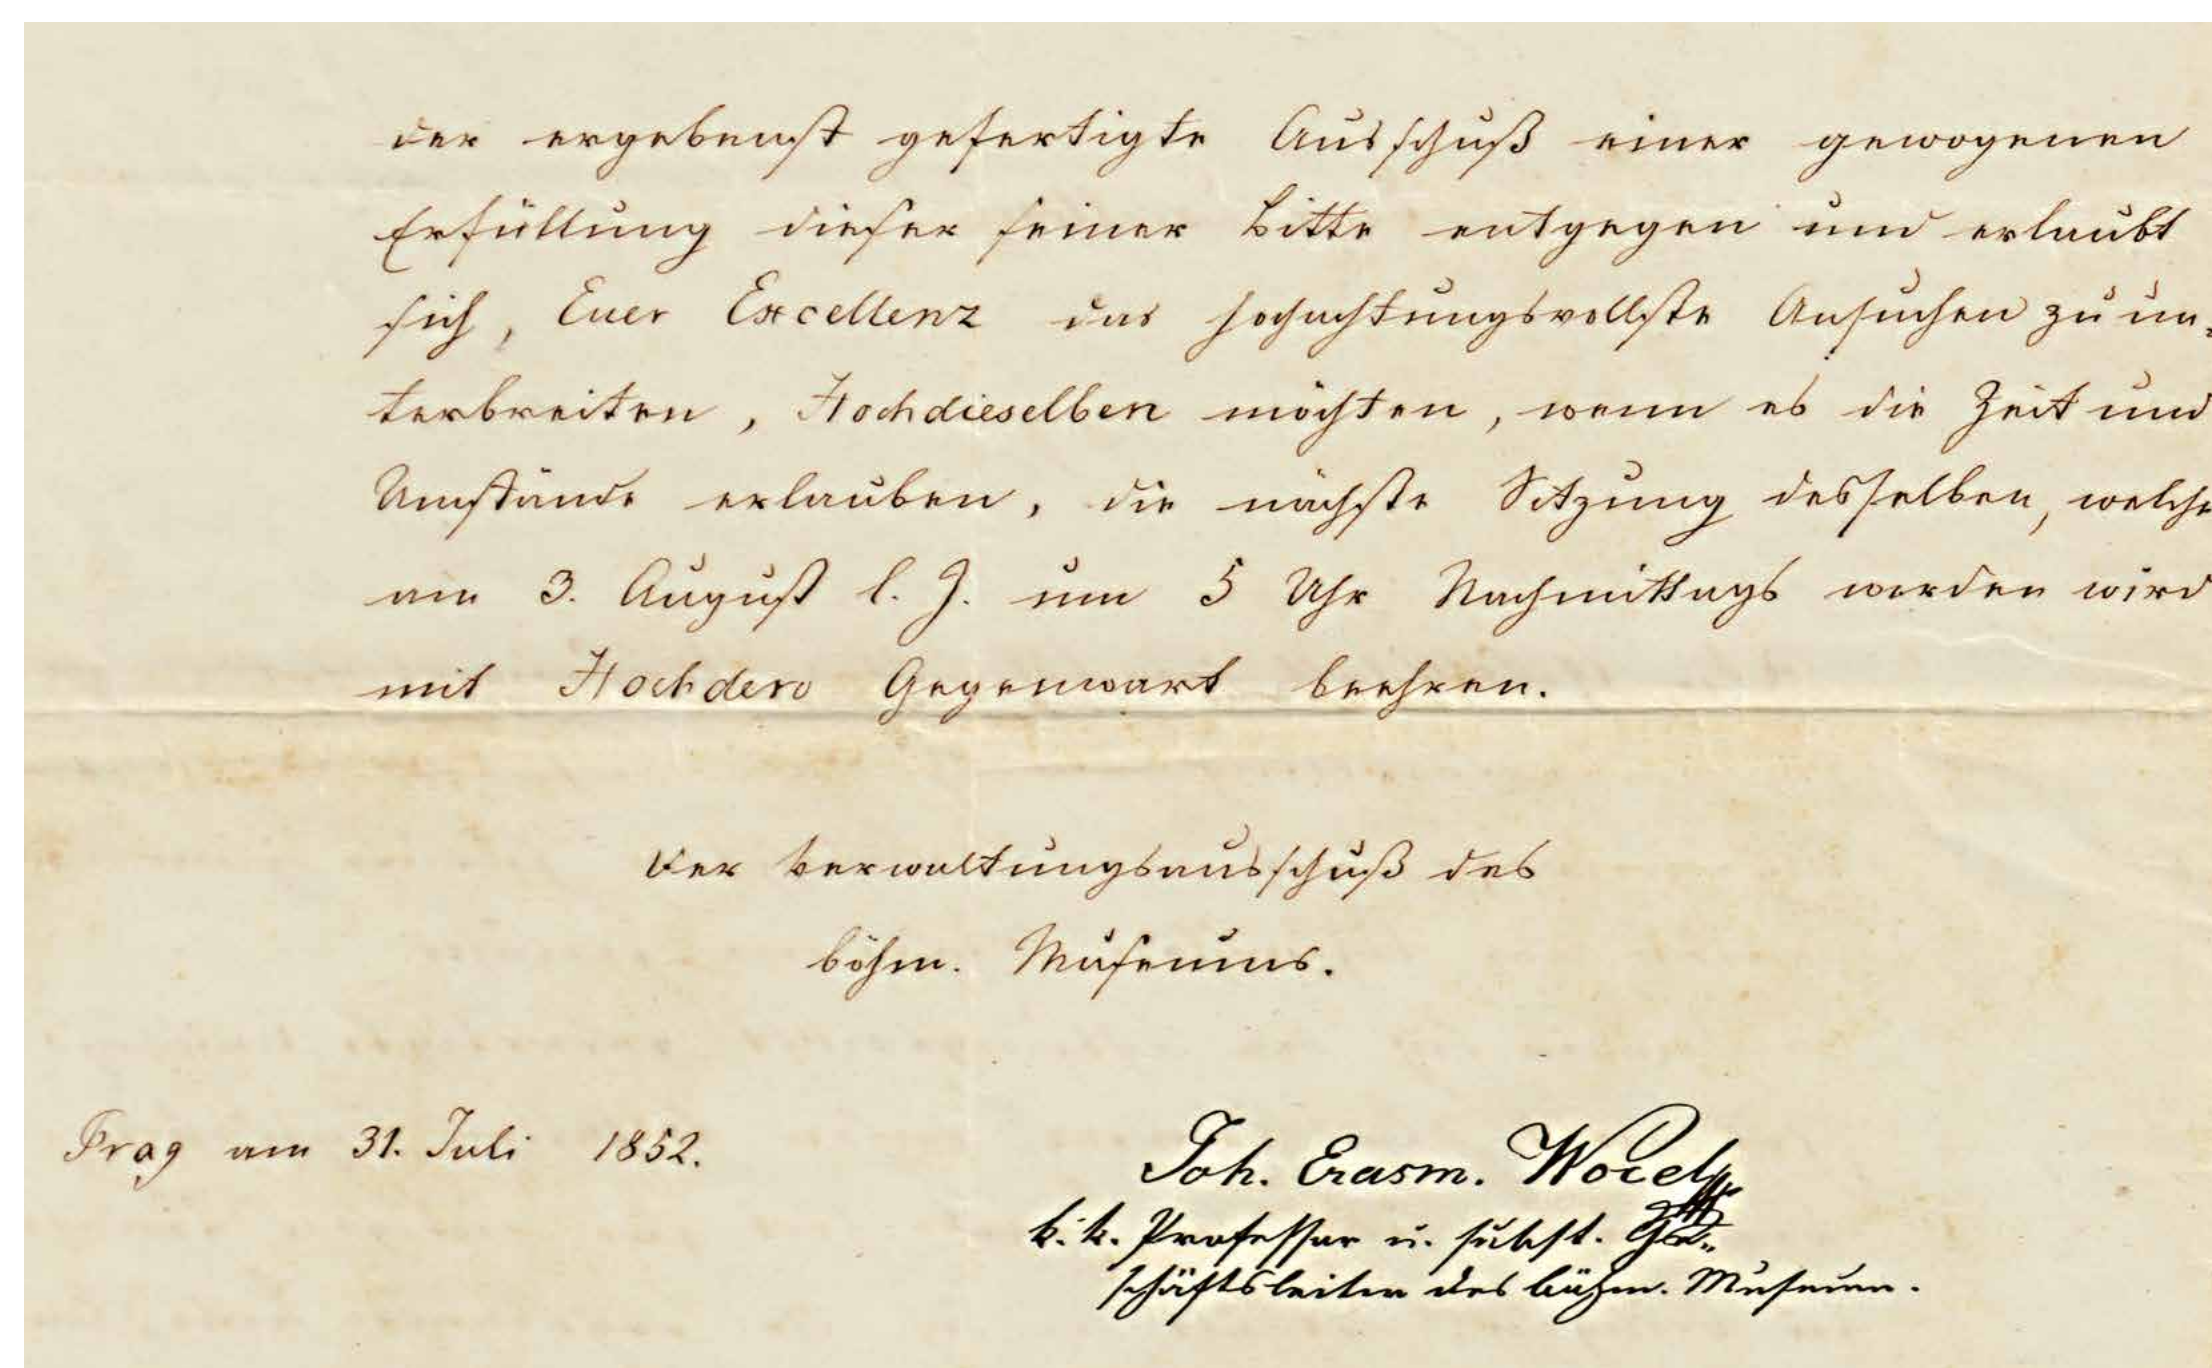 der ergebenst gefertigte Ausschuß einer gewogenen
Erfüllung dieser seiner Bitte entgegen und erlaubt
sich, Euer Excellenz das hochachtungsvollste Ansuchen zu un-
terbreiten, Hochdieselben möchten, wenn es die Zeit und
Umstände erlauben, die nächste Sitzung desselben, welche
am 3. August l. J. um 5 Uhr Nachmittags werden wird
mit Hochdero Gegenwart beehren.
Der Verwaltungsausschuß des
böhm. Museums.
Prag am 31. Juli 1852.
Joh. Erasm. Wocel
k. k. Professor u. subst. Ge-
schäftsleiter des böhm. Museum.